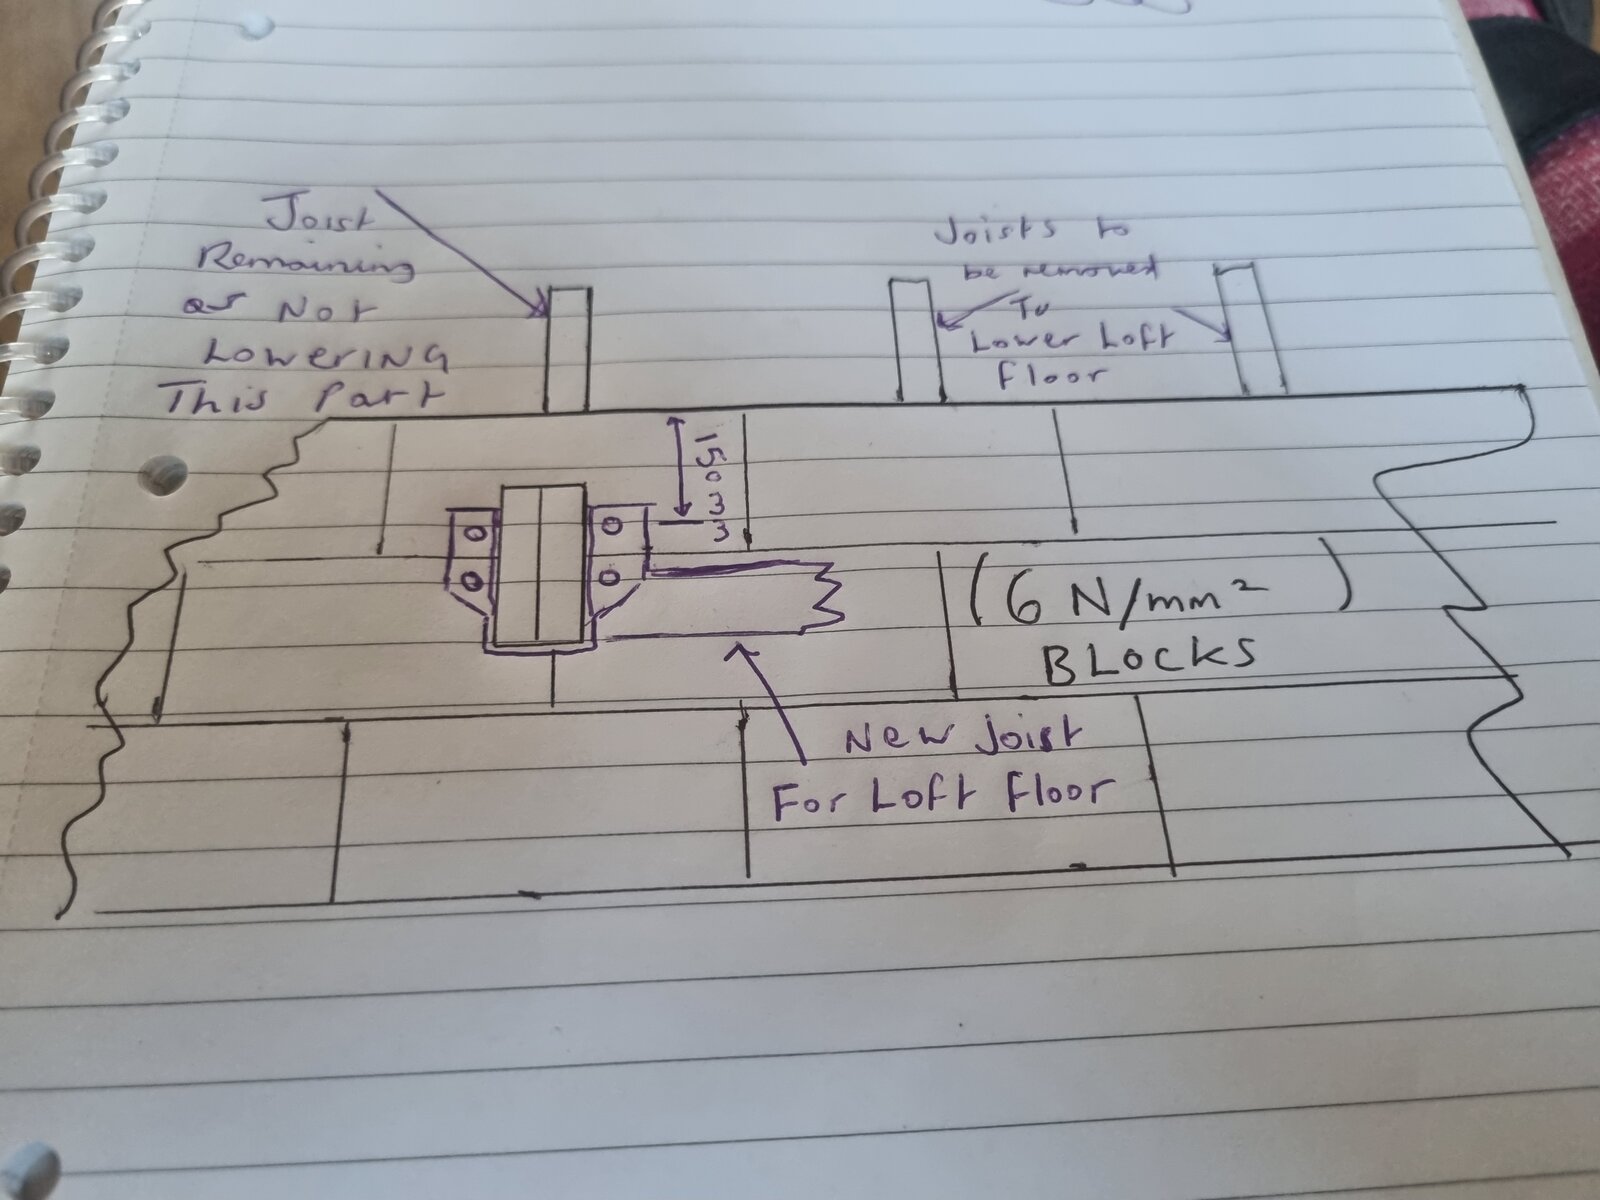 Joist
Remaining
as Not
Lowering
This Part
Joists to
be removed
To
Lower Loft
Floor
150
33
(6 N/mm²)
BLOCKS
New Joist
For Loft Floor